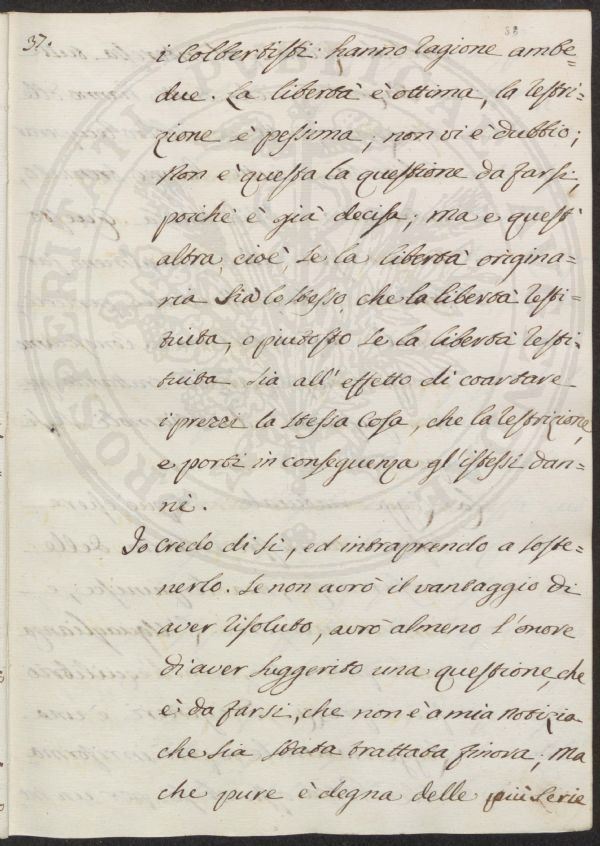 37.
38
i Colbertisti hanno ragione ambe=
due. La libertà è ottima, la restri=
zione è pessima, non vi è dubbio;
Non è questa la questione da farsi,
poiche è già decisa; ma e quest'
altra, cioè, se la libertà origina=
ria sia lo stesso che la libertà resti=
tuita, o piutosto se la libertà resti=
tuita sia all'effetto di coartare
i prezzi la stessa Cosa, che la restrizione,
e porti in conseguenza gl'istessi dan=
ni.
Io credo di sì, ed intraprendo a soste=
nerlo. Se non avrò il vantaggio di
aver risoluto, avrò almeno l'onore
di aver suggerito una questione, che
è da farsi, che non è a mia notizia
che sia stata trattata finora; ma
che pure è degna delle più serie